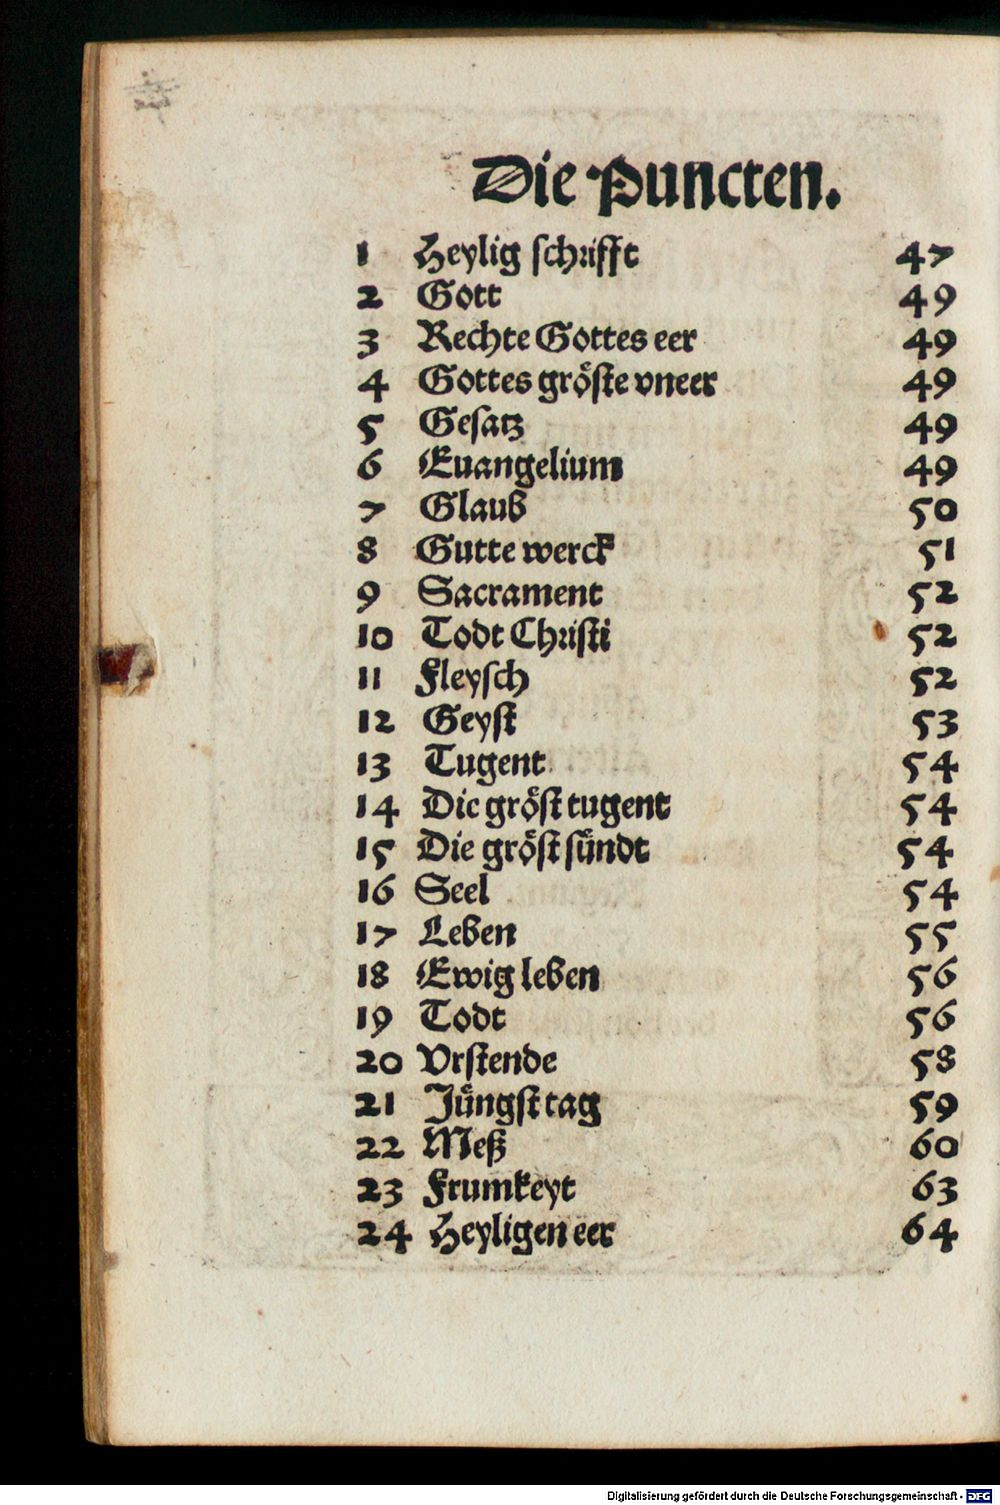 Die Puncten.
1 Heylig schrifft 47
2 Gott 49
3 Rechte Gottes eer 49
4 Gottes gröste vneer 49
5 Gesatz 49
6 Euangelium 49
7 Glaub 50
8 Gutte werck 51
9 Sacrament 52
10 Todt Christi 52
11 Fleysch 52
12 Geyst 53
13 Tugent 54
14 Die gröst tugent 54
15 Die gröst sündt 54
16 Seel 54
17 Leben 55
18 Ewig leben 56
19 Todt 56
20 Vrstende 58
21 Jüngst tag 59
22 Meß 60
23 Frumkeyt 63
24 Heyligen eer 64
Digitalisierung gefördert durch die Deutsche Forschungsgemeinschaft - DFG